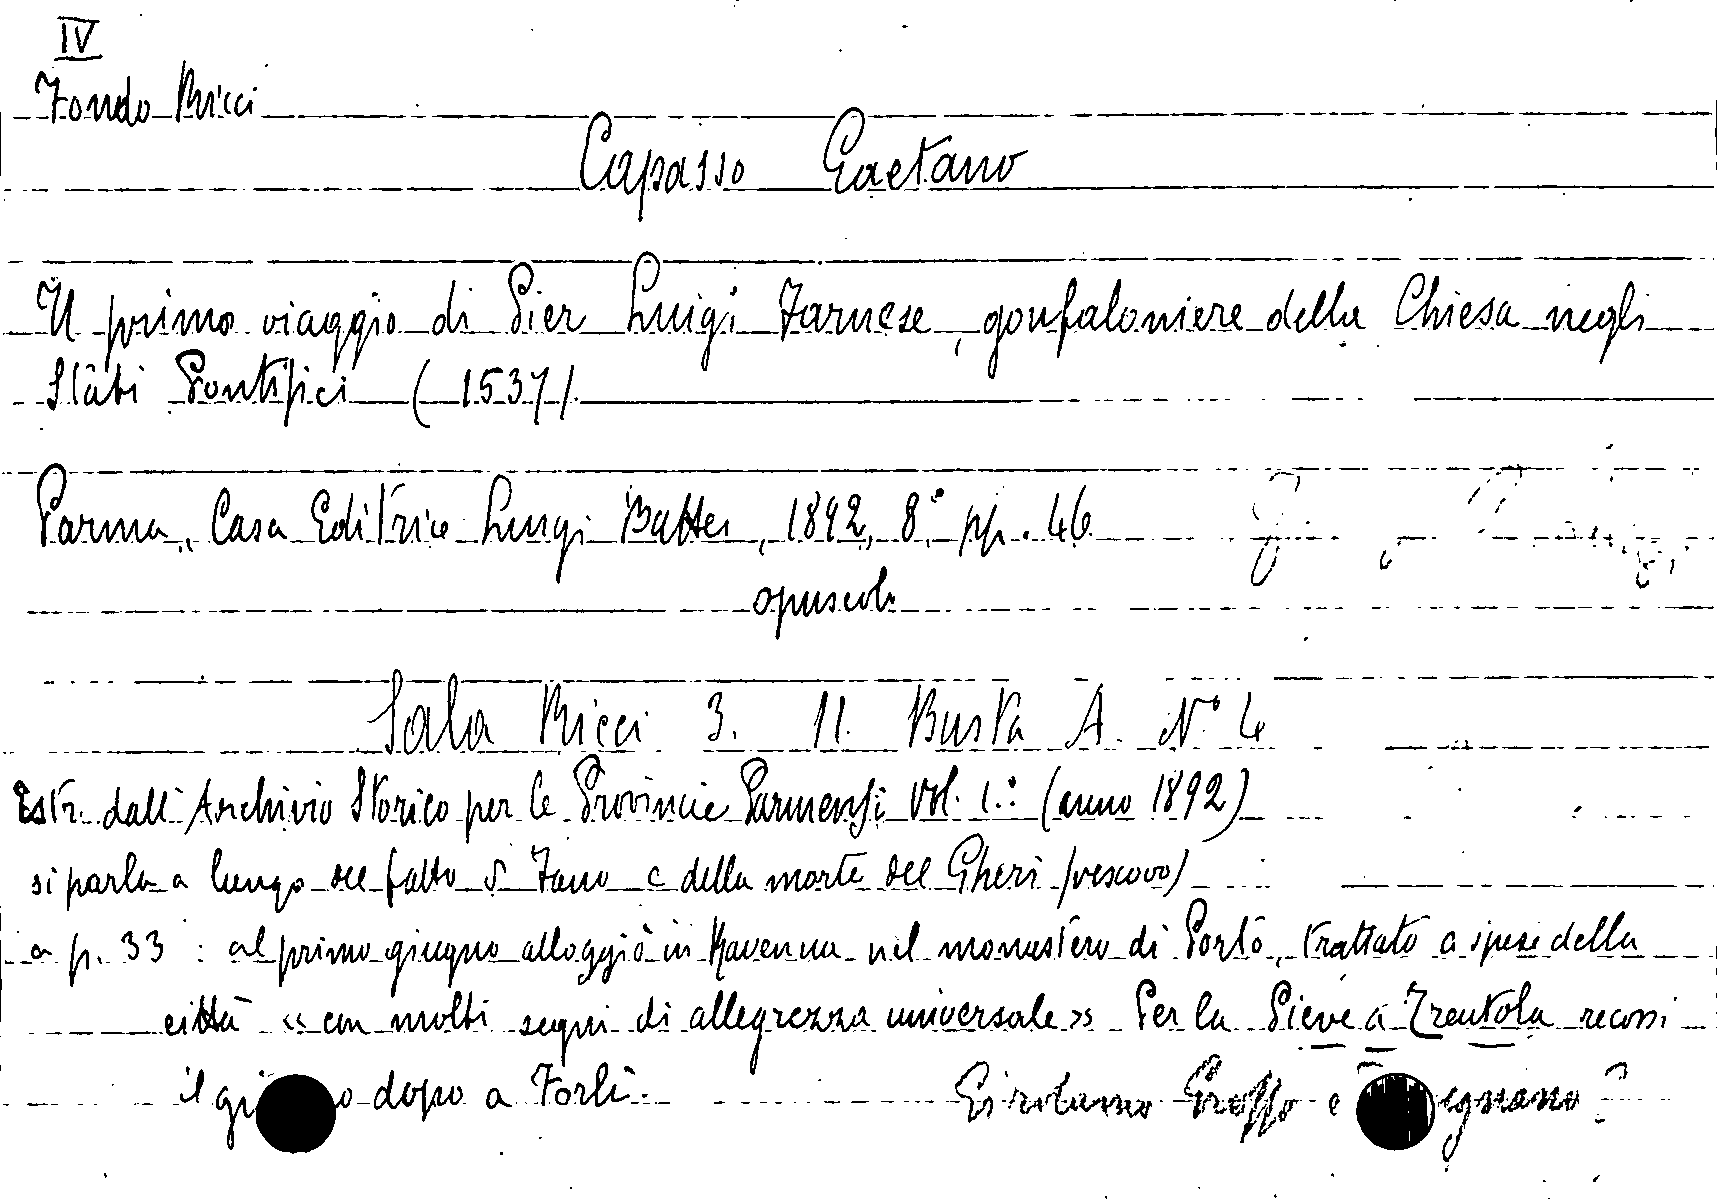 IV
Fondo Ricci
Capasso Gaetano
Il primo viaggio di Pier Luigi Farnese, gonfaloniere della Chiesa negli
Stati Pontifici (1537).
Parma, Casa Editrice Luigi Battei, 1892, 8° pp. 46
opuscolo
Sala Ricci 3. 11. Busta A. N° 4
Estr. dall'Archivio Storico per le Provincie Parmensi Vol. 1.° (anno 1892)
si parla a lungo del fatto di Fano e della morte del Gheri (vescovo)
a p. 33 : al primo giugno alloggiò in Ravenna nel monastero di Porto, trattato a spese della
città « con molti segni di allegrezza universale » Per la Pieve a Trentola recossi
il gi o dopo a Forlì.
Girolamo e egnano ?